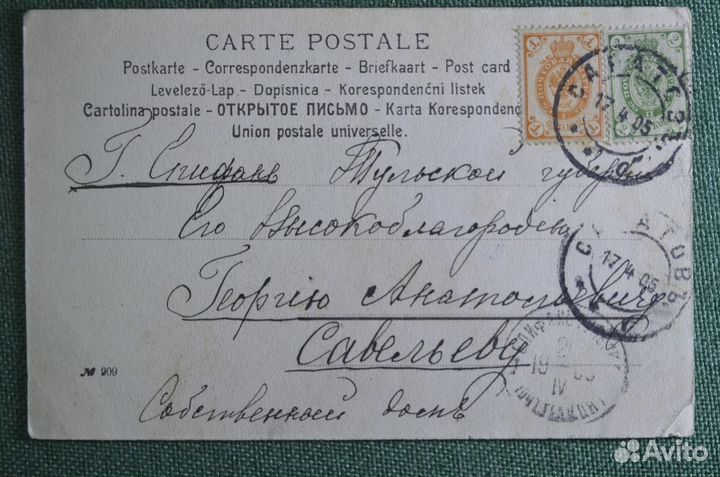 CARTE POSTALE
Postkarte - Correspondenzkarte - Briefkaart - Post card
Levelező-Lap - Dopisnica - Korespondenční listek
Cartolina postale - ОТКРЫТОЕ ПИСЬМО - Karta Korespondenc
Union postale universelle.
Г. Епифань Тульской губерніи
Его Высокоблагородію
Георгію Анатольевичу
Савельеву
Собственный домъ
№ 909
САРАТОВЪ
17 4 05
САРАТОВЪ
17 4 05
Avito